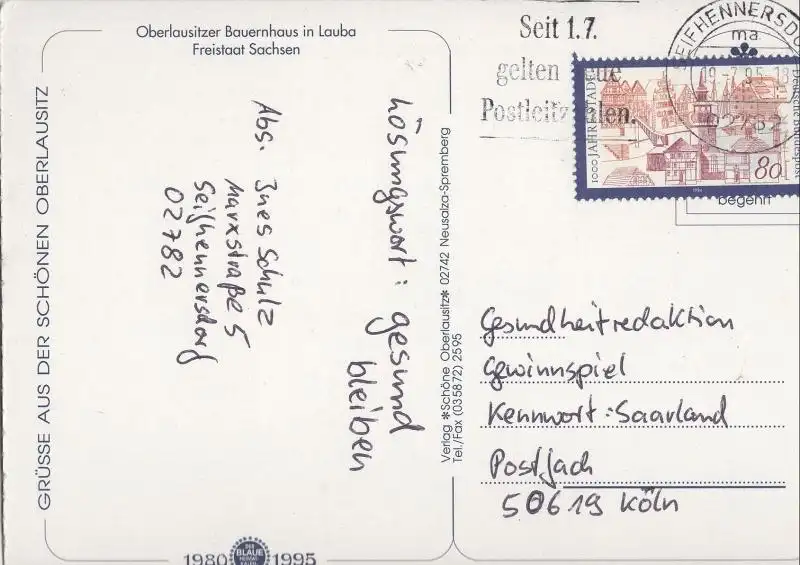 Oberlausitzer Bauernhaus in Lauba
Freistaat Sachsen
GRÜSSE AUS DER SCHÖNEN OBERLAUSITZ
Abs. Ines Schulz
Marxstraße 5
Seifhennersdorf
02782
Lösungswort: gesund
bleiben
Verlag *Schöne Oberlausitz* 02742 Neusalza-Spremberg
Tel./Fax (035872) 2595
1980 BLAUE 1995
Seit 1.7.
gelten neue
Postleitzahlen.
SEIFHENNERSDO
ma
Deutsche Bundespost
80
begehrt
Gesundheitredaktion
Gewinnspiel
Kennwort: Saarland
Postfach
50619 Köln